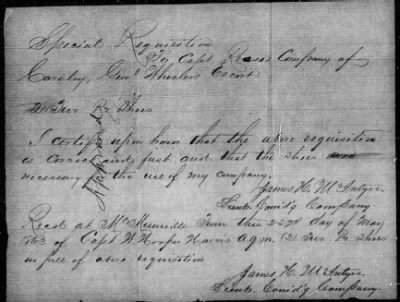 Special Requisition
To Capt Company of
Cavalry, Genl Wheelers Escort
Two Pr Shoes
I certify upon honor that the above requisition
is correct and just and that the shoes are
necessary for the use of my company.
Approved
James H. McIntyre
Lieut. Comd'g Company
Recd at McMinnville Tenn this 22nd day of May
1863 of Capt W. Hooper Harris a.q.m. (2) Two Pr Shoes
in full of above requisition
James H. McIntyre
Lieut. Comd'g Company.